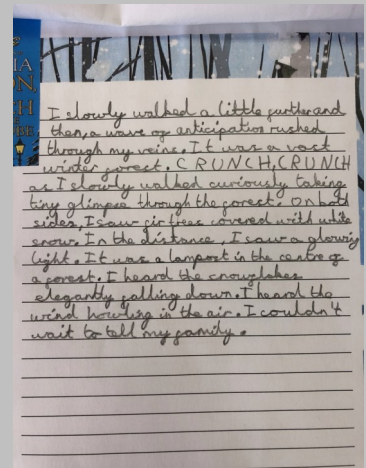 IA
N,
H
BE
I slowly walked a little further and
then, a wave of anticipation rushed
through my veins. It was a vast
winter forest. CRUNCH, CRUNCH
as I slowly walked curiously taking
tiny glimpse through the forest. On both
sides, I saw fir trees covered with white
snow. In the distance, I saw a glowing
light. It was a lampost in the centre of
a forest. I heard the snowflakes
elegantly falling down. I heard the
wind howling in the air. I couldn't
wait to tell my family.